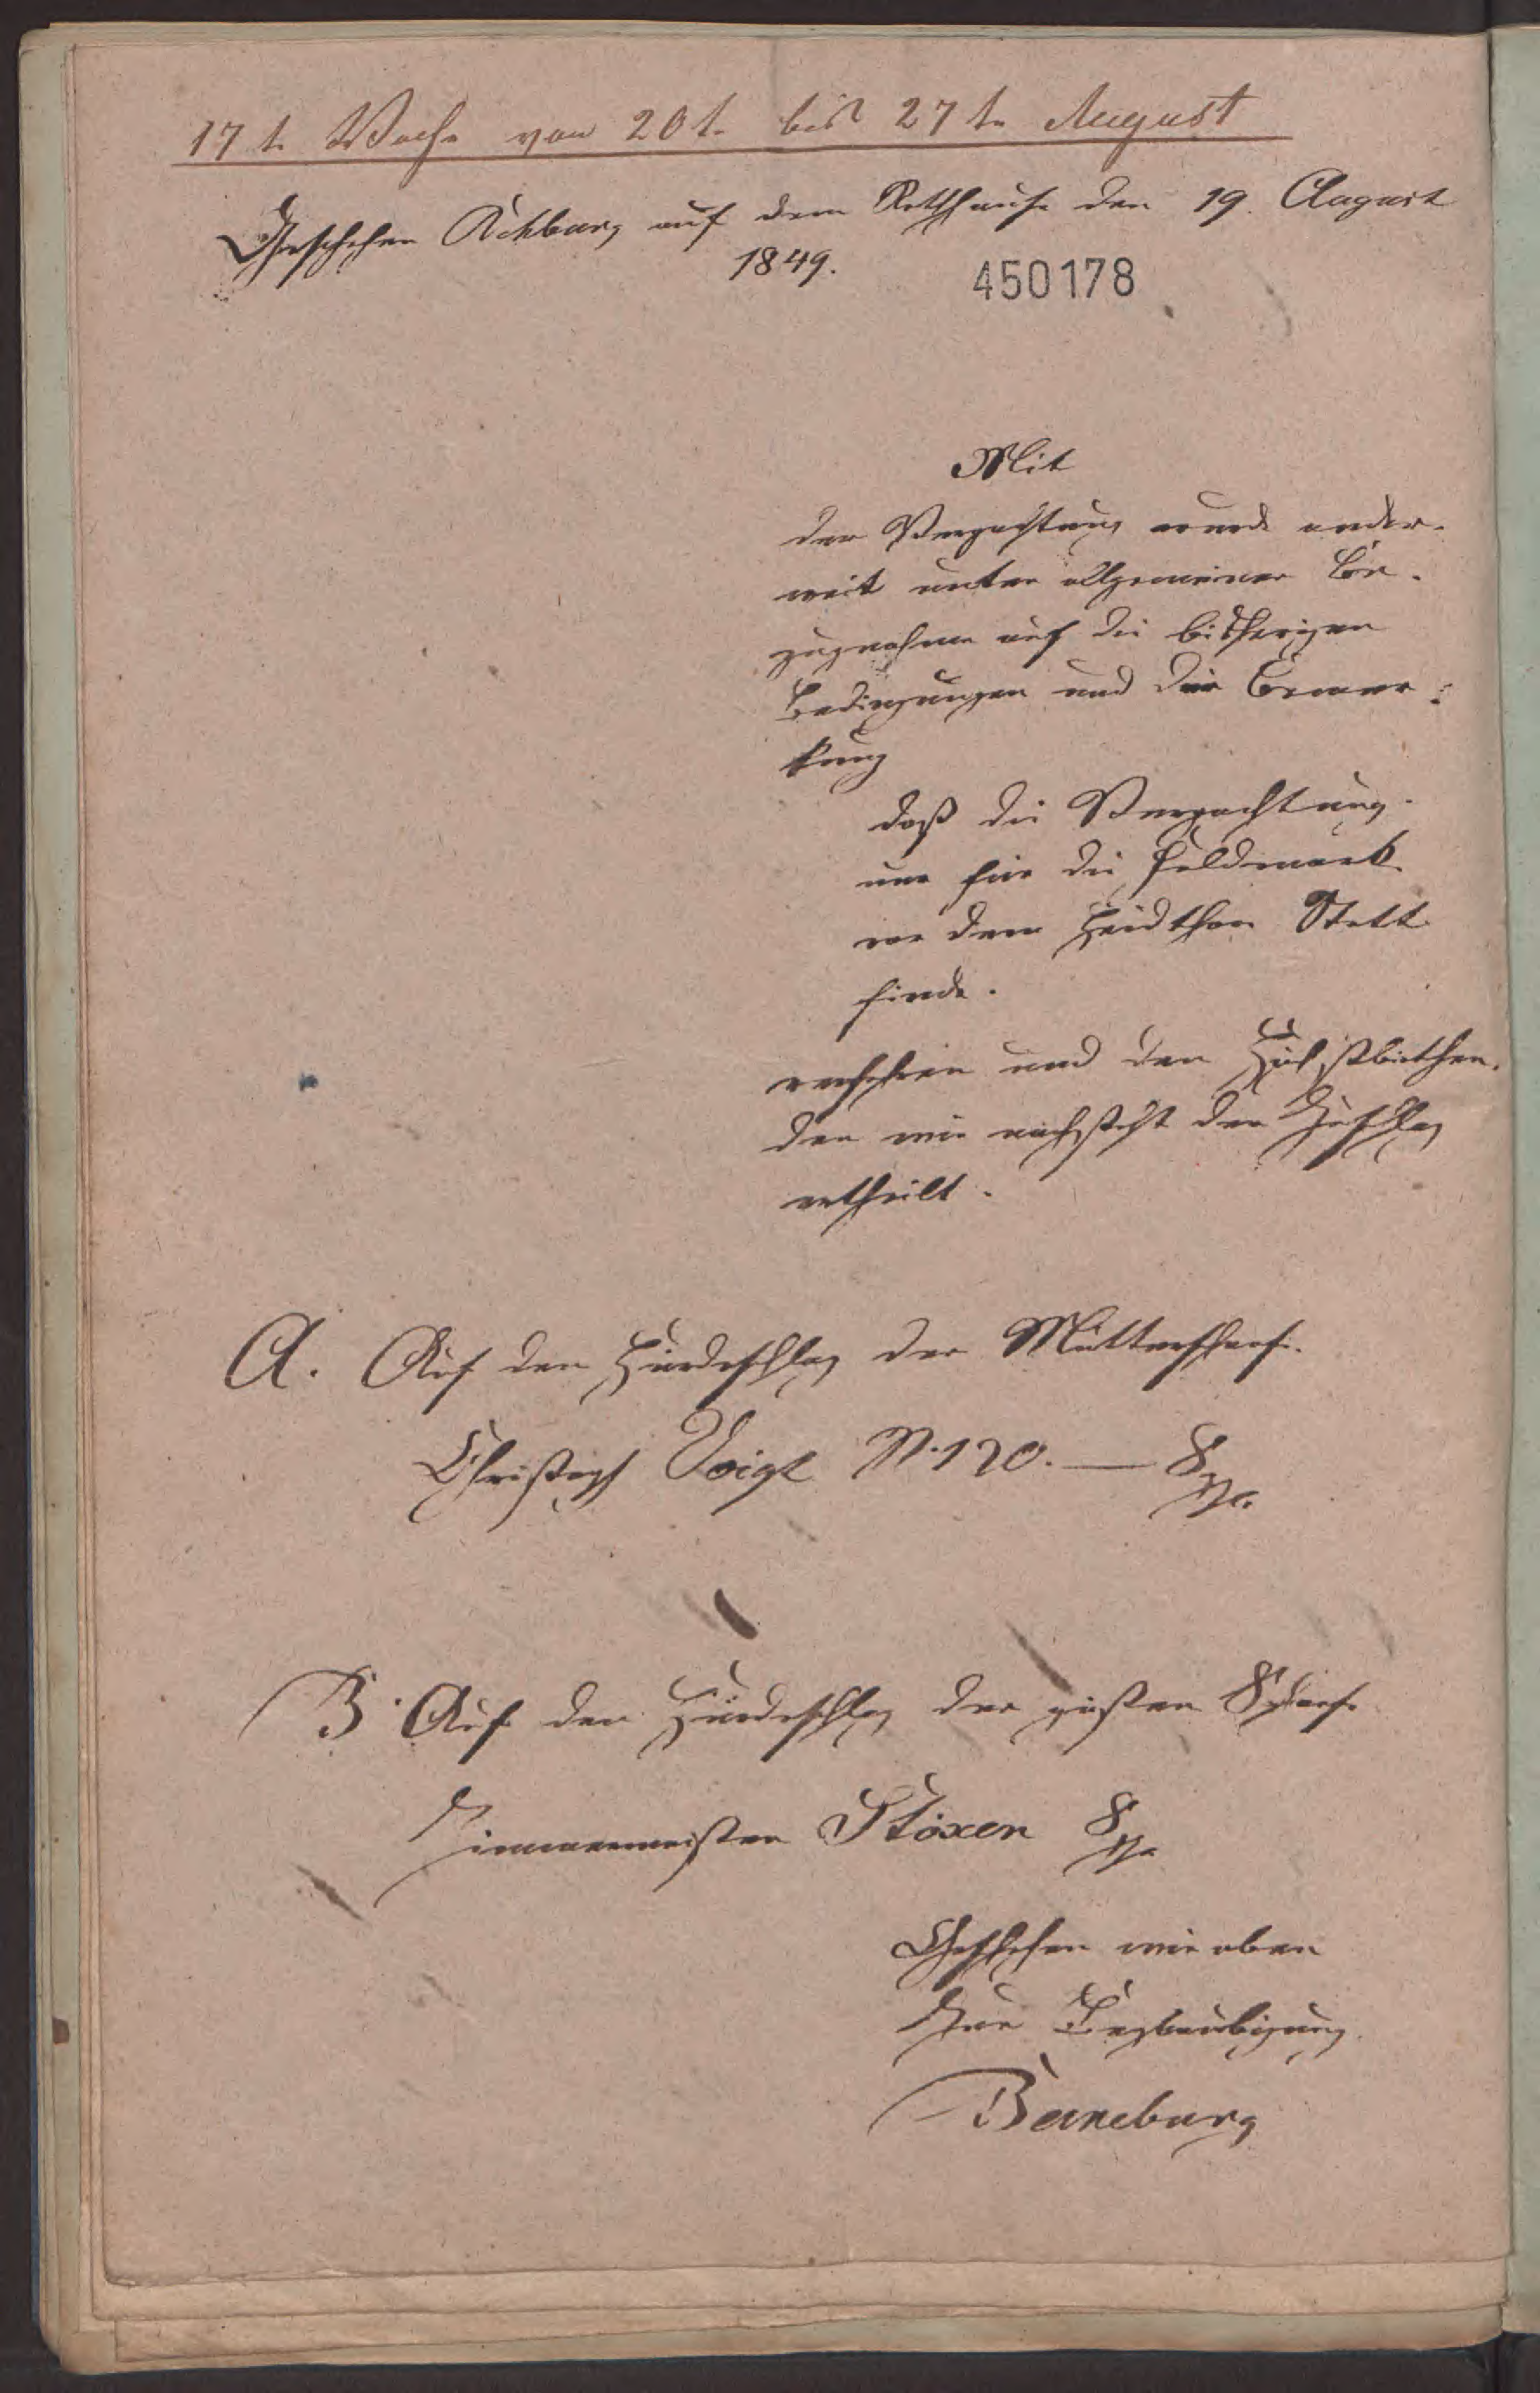 17t. Woche von 20t. bis 27ten August
Geschehen Rehburg auf dem Rathhause den 19. August
1849.
450178
Mit
der Verpachtung wurde ander-
weit unter allgemeiner Be-
zugnahme auf die bisherigen
Bedingungen und die Bemer-
kung
daß die Verpachtung
nur für die Feldmark
vor dem Heidthor Statt
finde.
verfahren und den Höchstbiethen-
den wie nachsteht der Zuschlag
ertheilt.
A. Auf den Hürdeschlag der Mutterschafe.
Christoph Voigt N. 120. — 8
B. Auf den Hürdeschlag der güsten Schaafe
Zimmermeister Stöxen 8
Geschehen wie oben
Zur Beglaubigung
Barneburg